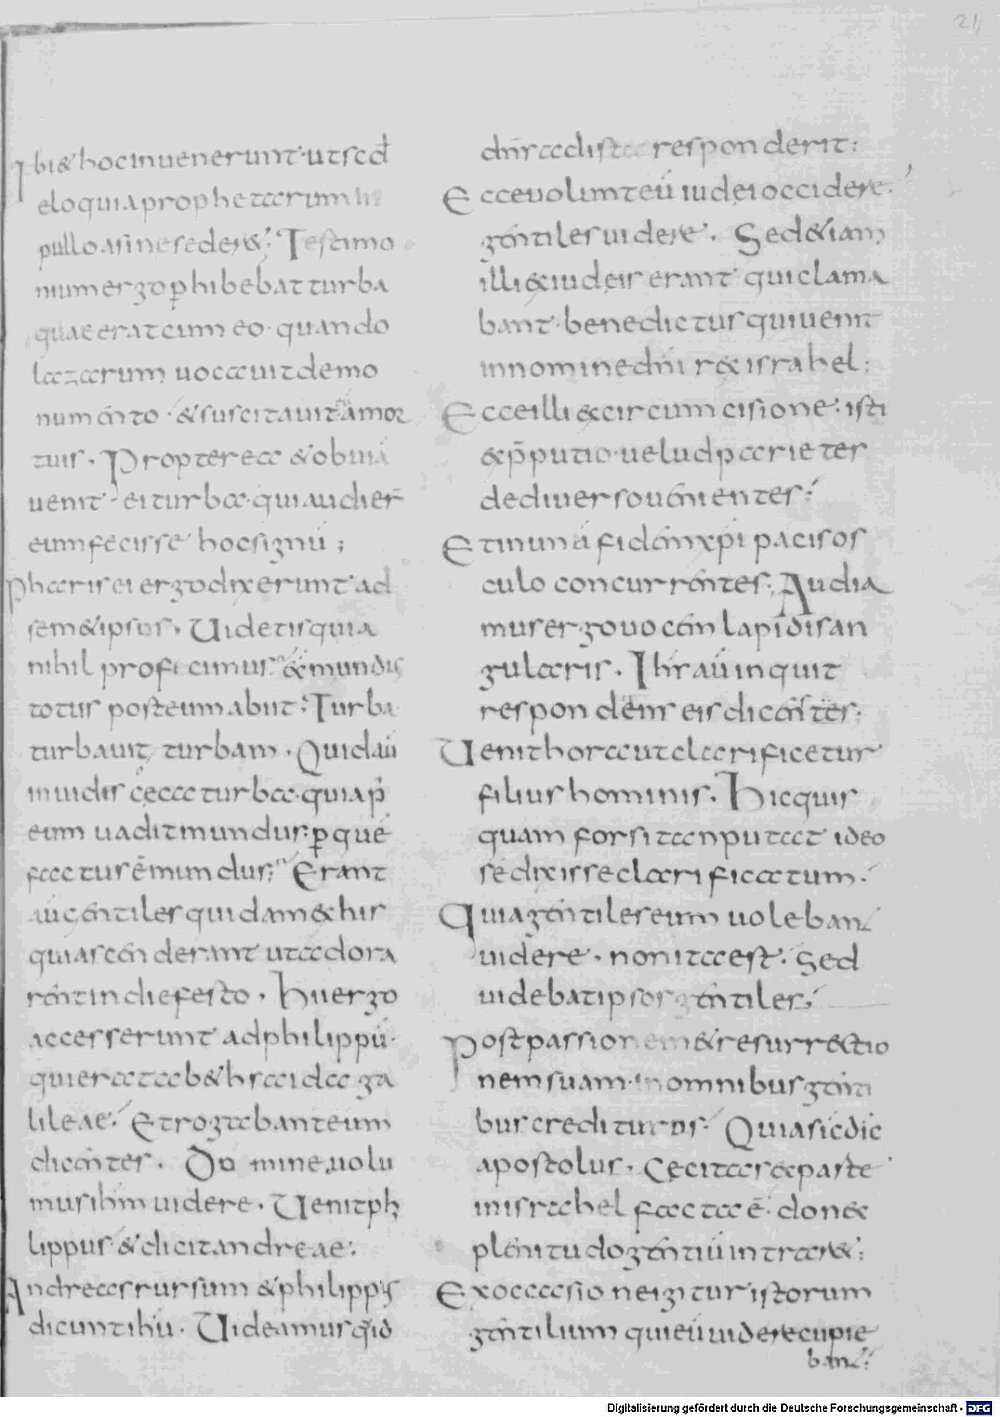 Ibi & hoc inuenerunt · ut s̄cd
eloquia prophetarum in
pullo asine seder&; Testimo
nium ergo p̱hibebat turba
quae erat cum eo · quando
lazarum uocauit de mo
numento · & suscitauit eū a mor
tuis . Propterea & obuiā
uenit ei turba · qui audier̄
eum fecisse hoc signū ;
Pharisei ergo dixerunt ad
sem&ipsos . Uidetis quia
nihil profecimus · ecce mundus
totus post eum abiit ; Turba
turbauit turbam . Quid aū
inuidet cęca turba · quia p̱
eum uadit mundus · p̱ quē
factus ē mundus ; Erant
aū gentiles quidam ex his
qui ascenderant ut adora
rent in die festo . Hii ergo
accesserunt ad philippū ·
qui erat a b&hsaida ga
lileae ; Et rogabant eum
dicentes . Domine, uolu
mus ihm̄ uidere . Uenit phi
lippus & dicit andreae ;
Andreas rursum & philippus
dicunt ihū . Uideamus quid
dn̄s respon derit ;
Ecce uolunt eū iudei occidere .
gentiles uidere . Sed & iam
illi ex iudeis erant qui clama
bant · benedictus qui uenit
in nomine dn̄i rex israhel ;
Ecce illi ex circumcisione · isti
ex p̄putio · uelud parietes
de diuerso uenientes ;
Et in unā fidem xp̄i pacis os
culo concurrentes ; Audia
mus ergo uocem lapidis an
gularis . Ihs̄ aū inquit
respondens eis dicens ;
Uenit hora ut clarificetur
filius hominis . Hic quis
quam forsitan putat ideo
se dixisse clarificatum ·
Quia gentiles eum uoleban
uidere . non ita est . Sed
uidebat ipsos gentiles ;
Post passionem & resurrectio
nem suam · in omnibus genti
bus credituros . Quia sic dic̄
apostolus . Cęcitas ex parte
in israhel facta ē · donec
plenitudo gentiū intrar& ;
Ex occasione igitur istorum
gentilium qui eū uidere cupie
bant ;
Digitalisierung gefördert durch die Deutsche Forschungsgemeinschaft - DFG